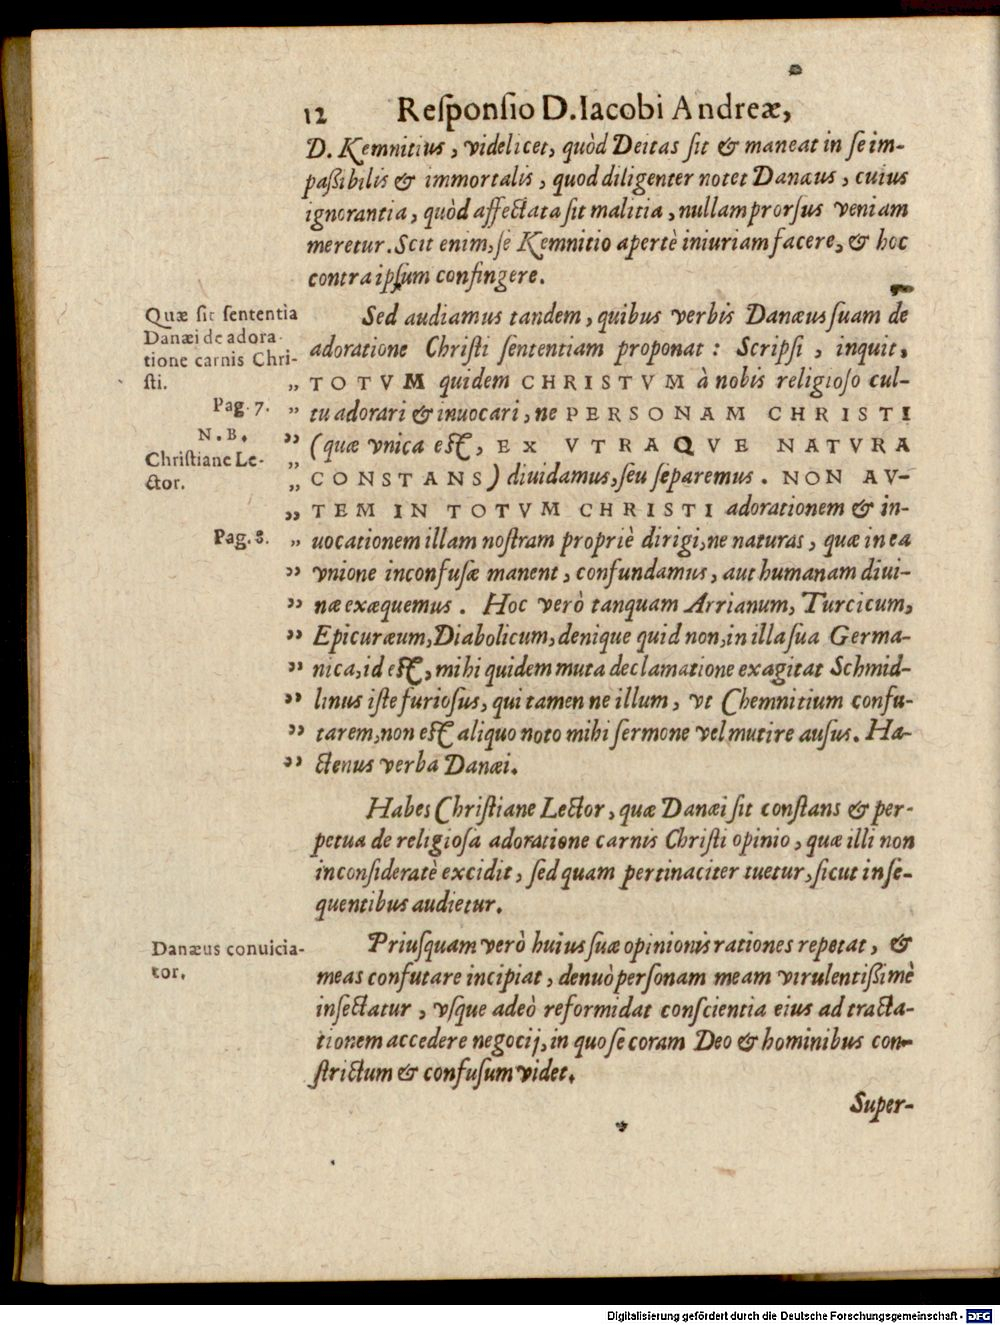 12 Reſponſio D. Iacobi Andreæ,
D. Kemnitius, videlicet, quòd Deitas ſit & maneat in ſe im-
paßibilis & immortalis, quod diligenter notet Danæus, cuius
ignorantia, quòd affectata ſit malitia, nullam prorſus veniam
meretur. Scit enim, ſe Kemnitio apertè iniuriam facere, & hoc
contra ipſum confingere.
Quæ ſit ſententia
Danæi de adora
tione carnis Chri-
ſti.
Sed audiamus tandem, quibus verbis Danæus ſuam de
adoratione Chriſti ſententiam proponat: Scripſi, inquit,
„ TOTVM quidem CHRISTVM à nobis religioſo cul-
Pag. 7.
„ tu adorari & inuocari, ne PERSONAM CHRISTI
N. B.
Chriſtiane Le-
ctor.
„ (quæ vnica eſt, EX VTRAQVE NATVRA
„ CONSTANS) diuidamus, ſeu ſeparemus. NON AV-
„ TEM IN TOTVM CHRISTI adorationem & in-
Pag. 8.
„ uocationem illam noſtram propriè dirigi, ne naturas, quæ in ea
„ vnione inconfuſæ manent, confundamus, aut humanam diui-
„ næ exæquemus. Hoc verò tanquam Arrianum, Turcicum,
„ Epicuræum, Diabolicum, denique quid non, in illa ſua Germa-
„ nica, id eſt, mihi quidem muta declamatione exagitat Schmid-
„ linus iſte furioſus, qui tamen ne illum, vt Chemnitium confu-
„ tarem, non eſt aliquo noto mihi ſermone vel mutire auſus. Ha-
„ ctenus verba Danæi.
Habes Chriſtiane Lector, quæ Danæi ſit conſtans & per-
petua de religioſa adoratione carnis Chriſti opinio, quæ illi non
inconſideratè excidit, ſed quam pertinaciter tuetur, ſicut in ſe-
quentibus audietur.
Danæus conuicia-
tor.
Priuſquam verò huius ſuæ opinionis rationes repetat, &
meas confutare incipiat, denuò perſonam meam virulentißimè
inſectatur, vſque adeò reformidat conſcientia eius ad tracta-
tionem accedere negocij, in quo ſe coram Deo & hominibus con-
ſtrictum & confuſum videt.
Super-
Digitalisierung gefördert durch die Deutsche Forschungsgemeinschaft - DFG